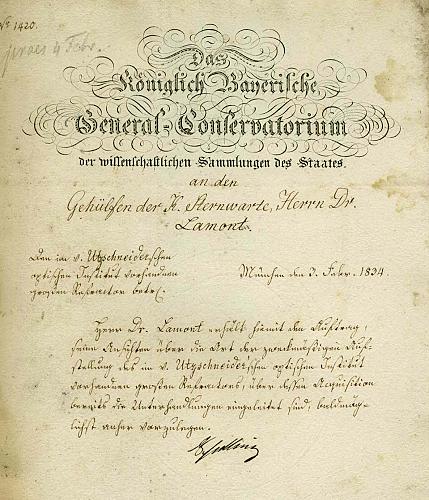 No 1420.
praes 4 Febr.
Das
Königlich Bayerische
General-Conservatorium
der wissenschaftlichen Sammlungen des Staates.
an den
Gehülfen der K. Sternwarte, Herrn Dr.
Lamont.
Den im v. Utzschneider'schen
optischen Institut vorhandenen
großen Refractor betr.
München den 3. Febr. 1834.
Herr Dr. Lamont erhält hiemit den Auftrag,
seine Ansichten über die Art der zweckmäßigen Auf-
stellung des im v. Utzschneider'schen optischen Institut
vorhandenen großen Refractors, über dessen Acquisition
bereits die Unterhandlungen eingeleitet sind, baldmög-
lichst anher vorzulegen.
Schelling